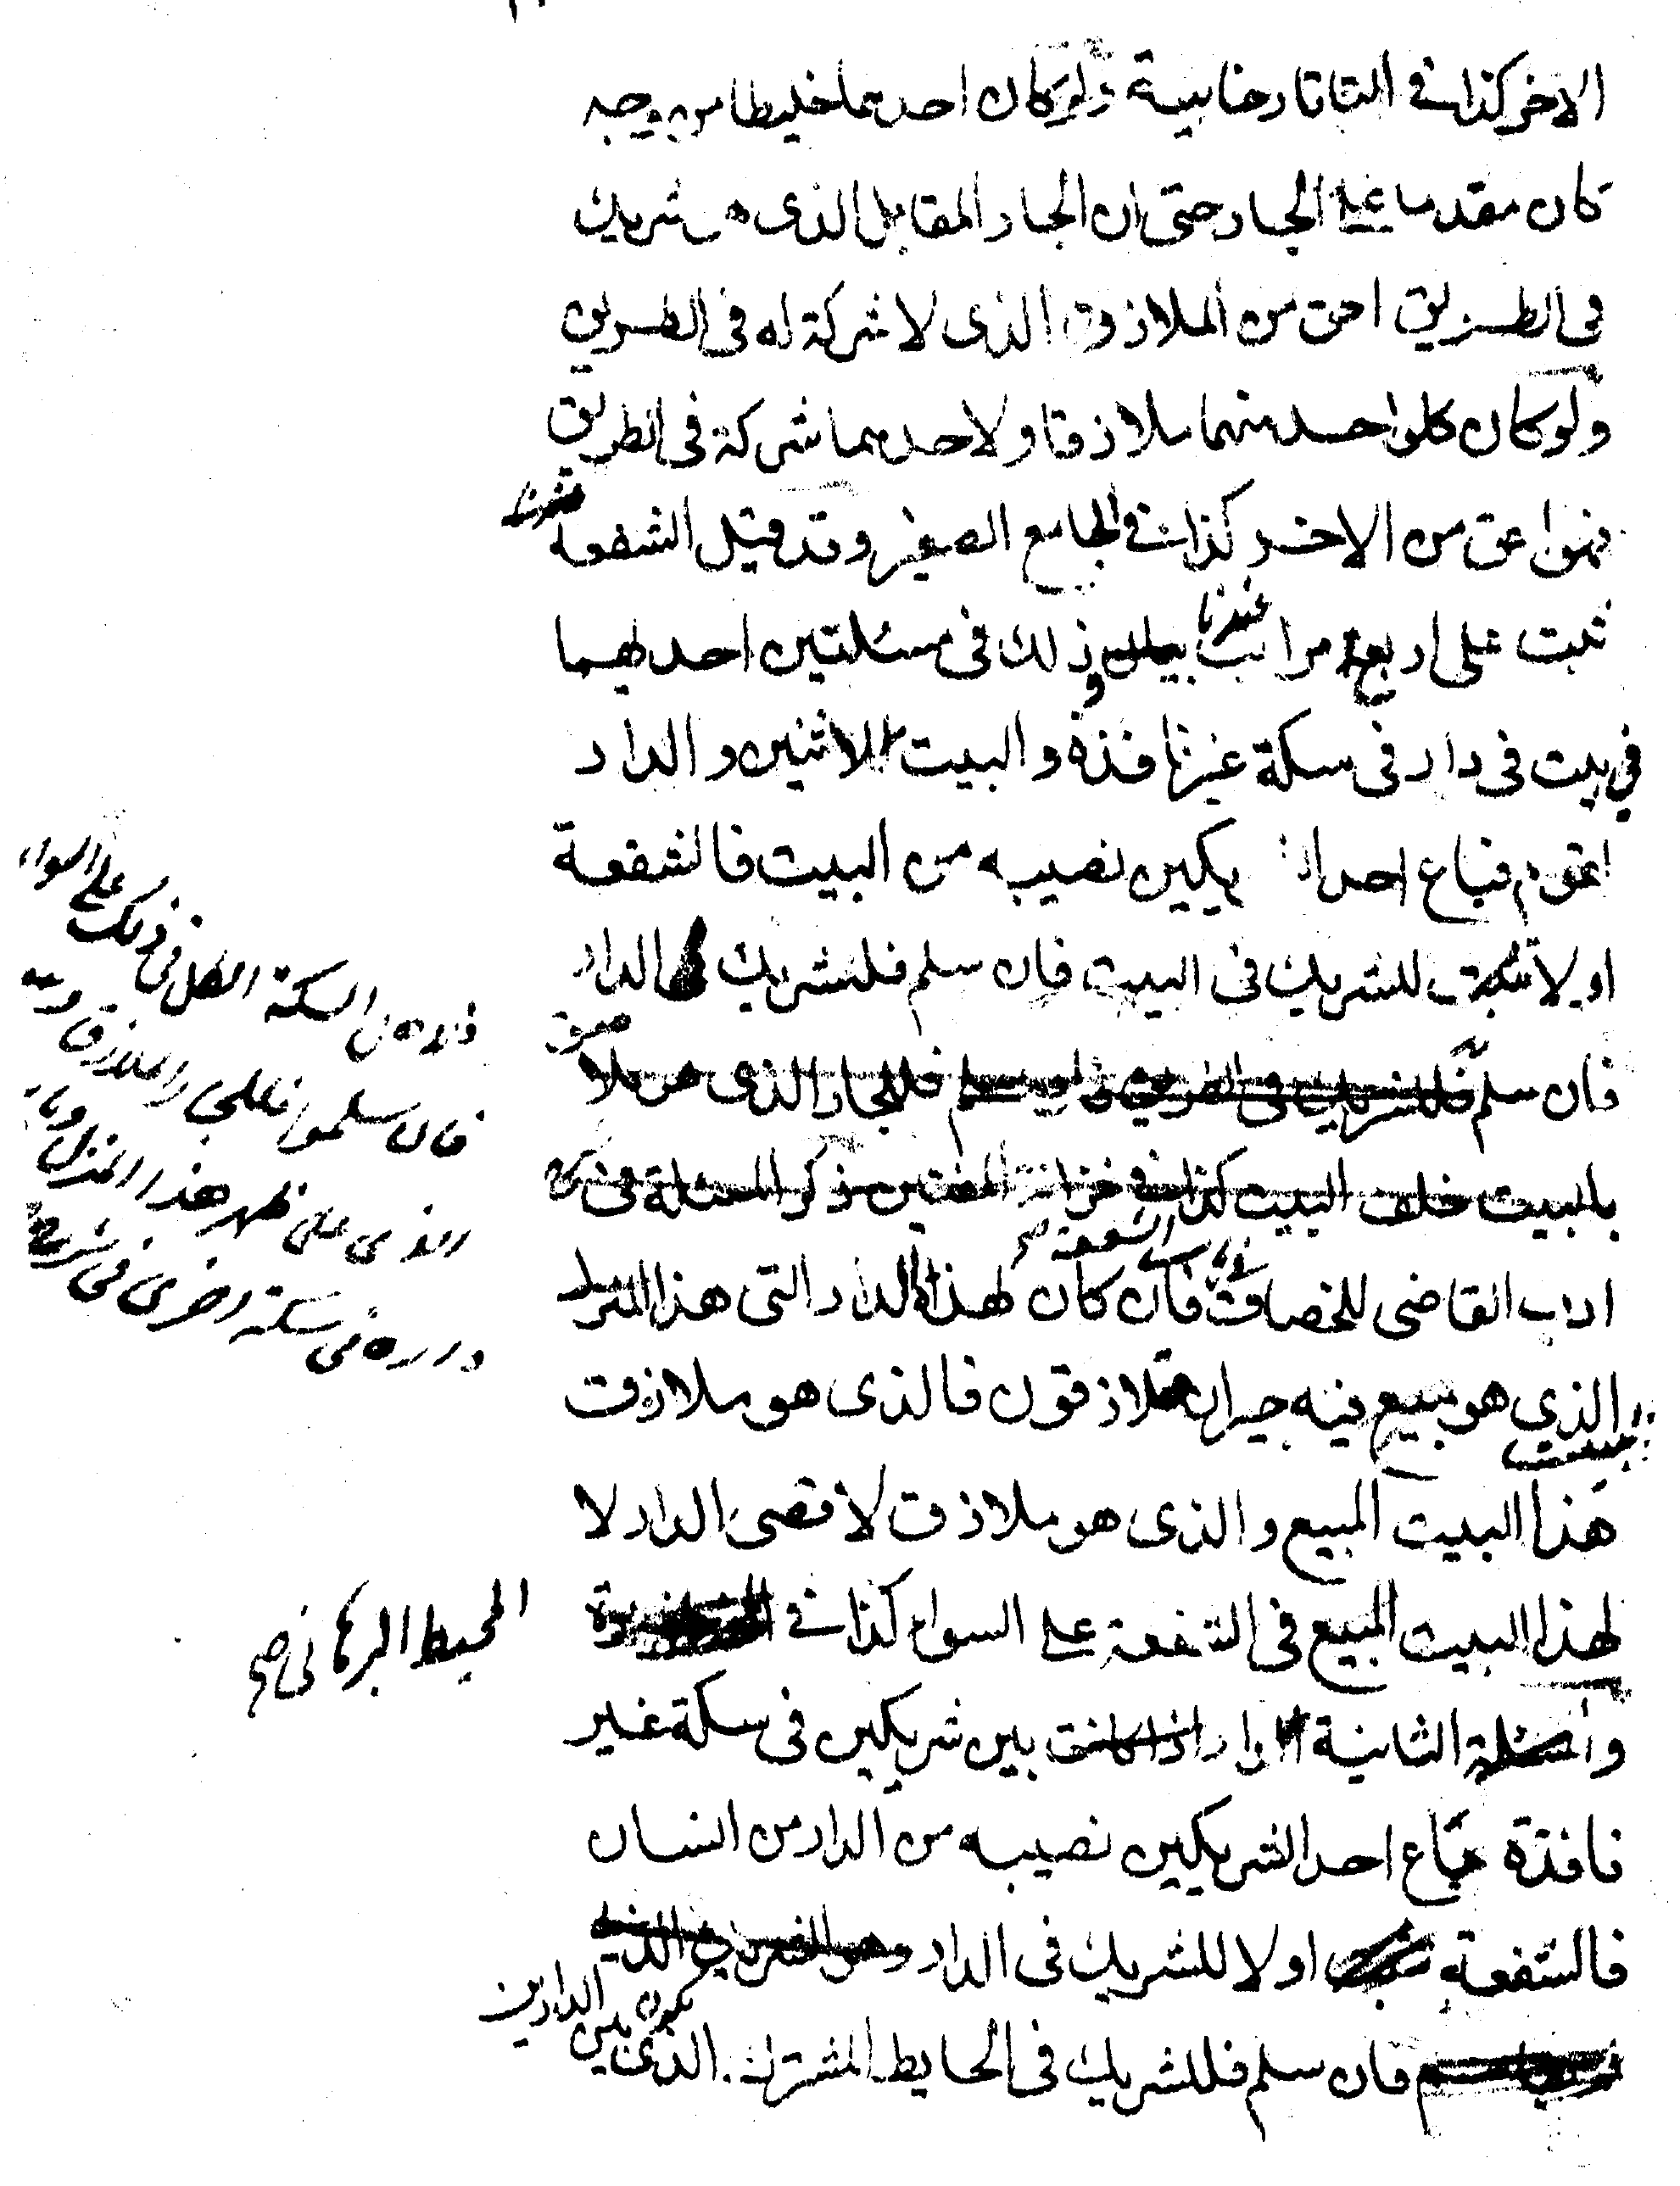 الاخر كذا في التاتارخانية ولو كان احدهما خليطا من وجه
كان مقدما على الجار حتى ان الجار المقابل الذى هو شريك
فى الطريق احق من الملازق الذى لا شركة له فى الطريق
ولو كان كلواحد منهما ملازقا ولاحدهما شركة فى الطريق
فهو احق من الاخر كذا في الجامع الصغير وقد قيل الشفعة
تثبت على اربع مراتب عندنا بيان ذلك فى مسئلتين احدلهما
في بيت فى دار فى سكة غير نافذة والبيت لاثنين والدار
لقوم فباع احد الشريكين نصيبه من البيت فالشفعة
اولا تثبت للشريك فى البيت فان سلم فللشريك فى الدار
فان سلم فللشريك فى الطريق فان سلم فللجار الذى هو ملازق
بالبيت خلف البيت كذا في خزانة المفتين ذكر المسئلة فى
ادب القاضى للخصاف فان كان لهذه الدار التى هذا المنزل
البيت الذي هو مبيع فيه جيران ملازقون فالذى هو ملازق
هذا البيت المبيع والذى هو ملازق لاقصى الدار لا
لهذا البيت المبيع فى الشفعة على السواء كذا في
والمسئلة الثانية الدار اذا كانت بين شريكين فى سكة غير
نافذة باع احد الشريكين نصيبه من الدار من انسان
فالشفعة اولا للشريك فى الدار وهو الشريك الذي
فان سلم فللشريك فى الحايط المشترك الذى يكون بين الدارين
فلاهل السكة الكل فى ذلك على السواء
فان سلموا فللجار الملازق وهو
الذى على ظهر هذا المنزل وباب
داره فى سكة اخرى
المحيط البرهانى صح